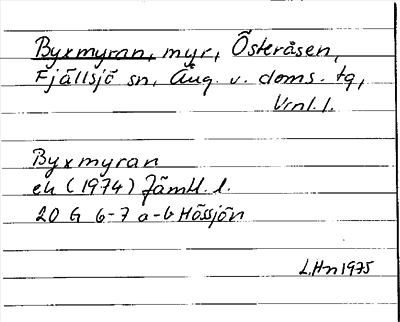 Byxmyran, myr, Österåsen,
Fjällsjö sn, Ång. v. doms. tg,
Vrnl. l.
Byxmyran
ek (1974) Jämtl. l.
20 G 6-7 a-b Hössjön
L.Hn 1975